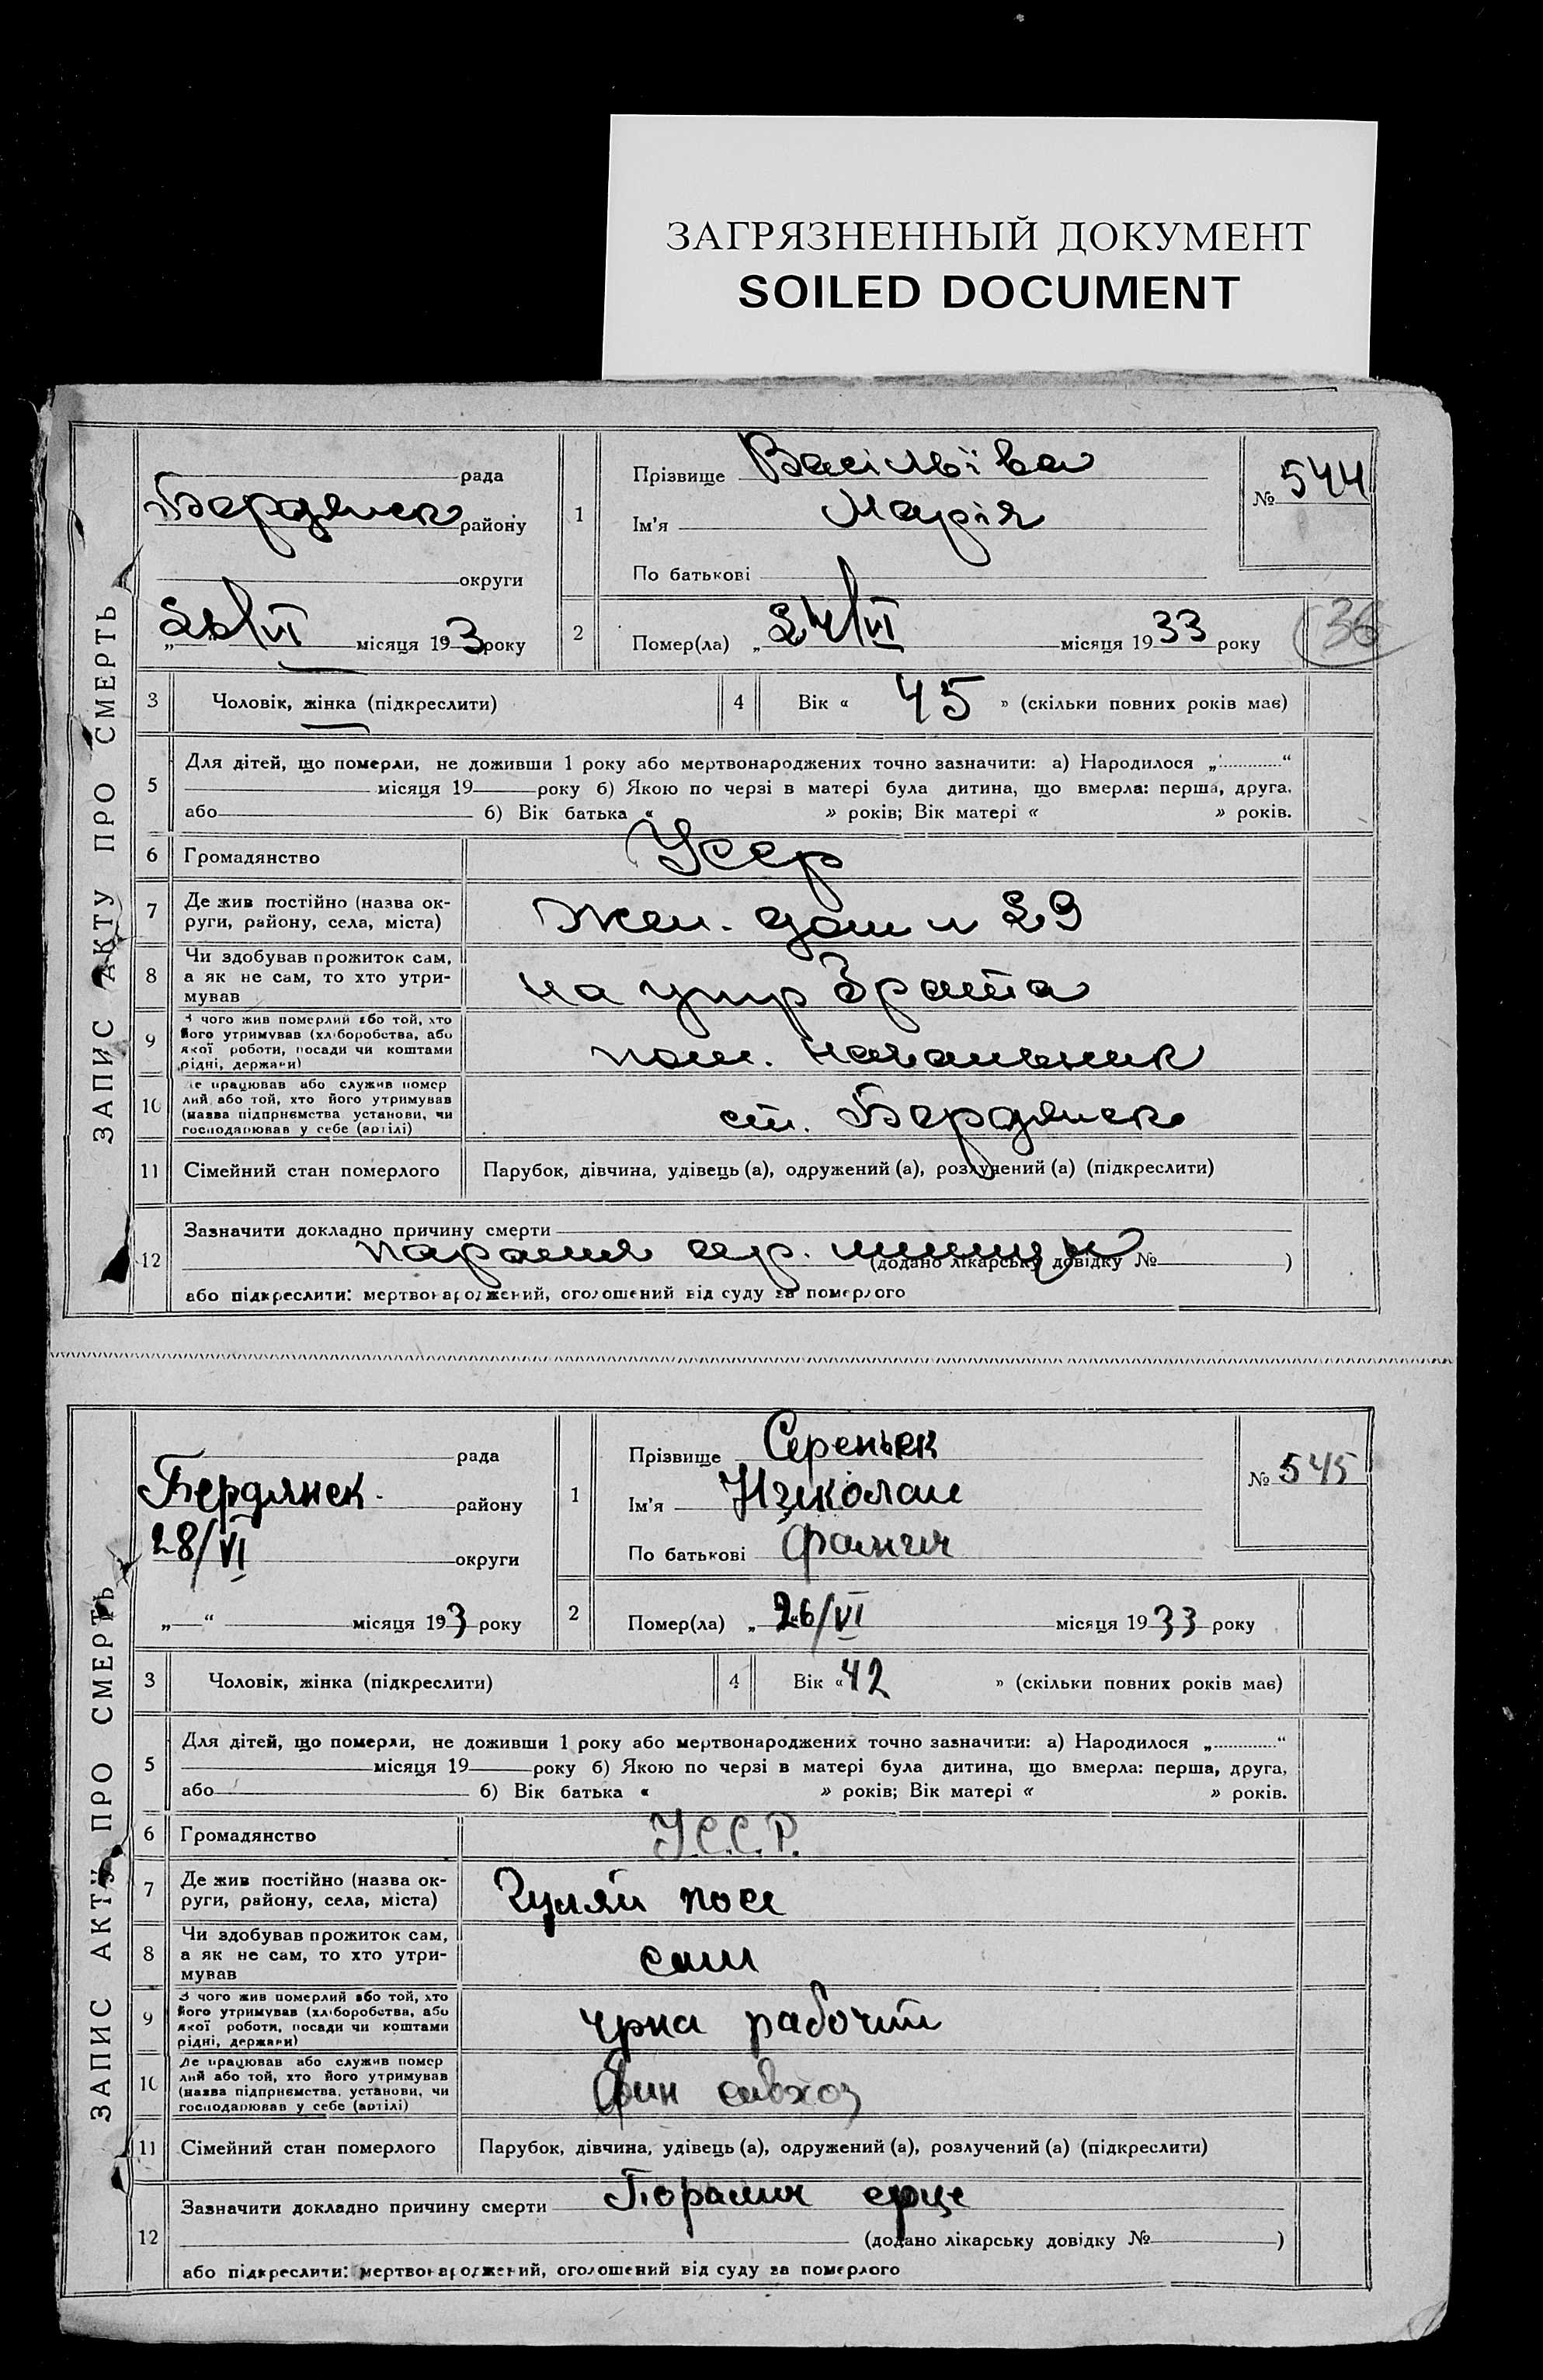 ЗАГРЯЗНЕННЫЙ ДОКУМЕНТ
SOILED DOCUMENT
ЗАПИС АКТУ ПРО СМЕРТЬ
рада
Бердянск району
округи
місяця 193 3 року
1
Прізвище Васільїва
Ім'я Марія
По батькові
№ 544
2
Помер(ла) „ 24/VI місяця 1933 року
36
3 Чоловік, жінка (підкреслити)
4 Вік « 45 » (скільки повних років має)
5 Для дітей, що померли, не доживши 1 року або мертвонароджених точно зазначити: а) Народилося „ “
місяця 19 року б) Якою по черзі в матері була дитина, що вмерла: перша, друга,
або б) Вік батька « » років; Вік матері « » років.
6 Громадянство Усср
7 Де жив постійно (назва ок-
руги, району, села, міста)
Жел. дом н 29
8 Чи здобував прожиток сам,
а як не сам, то хто утри-
мував
на утр брата
9 З чого жив померлий або той, хто
його утримував (хліборобства, або
якої роботи, посади чи коштами
рідні, держави)
пом. начальник
10 Де працював або служив помер
лий або той, хто його утримував
(назва підприємства установи, чи
господарював у себе (артілі)
ст. Бердянск
11 Сімейний стан померлого Парубок, дівчина, удівець (а), одружений (а), розлучений (а) (підкреслити)
12 Зазначити докладно причину смерти
(додано лікарську довідку № )
або підкреслити: мертвонароджений, оголошений від суду за померлого
ЗАПИС АКТУ ПРО СМЕРТЬ
рада
Бердянск району
28/VI округи
„ “ місяця 193 3 року
1
Прізвище Сереньек
Ім'я Ніколай
По батькові
№ 545
2
Помер(ла) „ 26/VI місяця 1933 року
3 Чоловік, жінка (підкреслити)
4 Вік « 42 » (скільки повних років має)
5 Для дітей, що померли, не доживши 1 року або мертвонароджених точно зазначити: а) Народилося „ “
місяця 19 року б) Якою по черзі в матері була дитина, що вмерла: перша, друга,
або б) Вік батька « » років; Вік матері « » років.
6 Громадянство У.С.С.Р.
7 Де жив постійно (назва ок-
руги, району, села, міста)
Гуляй пол
8 Чи здобував прожиток сам,
а як не сам, то хто утри-
мував
сам
9 З чого жив померлий або той, хто
його утримував (хліборобства, або
якої роботи, посади чи коштами
рідні, держави)
чрна рабочий
10 Де працював або служив помер
лий або той, хто його утримував
(назва підприємства, установи, чи
господарював у себе (артілі)
совхоз
11 Сімейний стан померлого Парубок, дівчина, удівець (а), одружений (а), розлучений (а) (підкреслити)
12 Зазначити докладно причину смерти
(додано лікарську довідку № )
або підкреслити: мертвонароджений, оголошений від суду за померлого